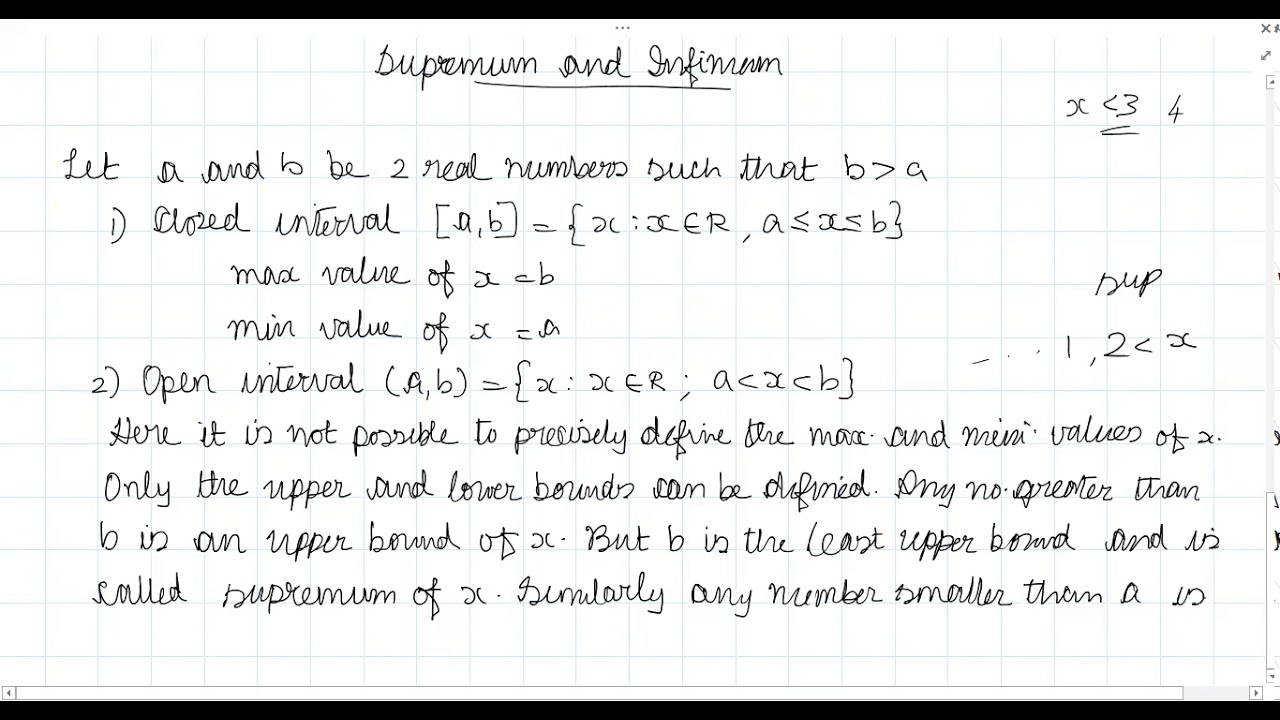 Supremum and Infimum
x <3 4
Let a and b be 2 real numbers such that b > a
1) Closed interval [a,b] = {x : x ∈ R, a ≤ x ≤ b}
max value of x = b
min value of x = a
sup
- . . . 1, 2 < x
2) Open interval (a,b) = {x : x ∈ R ; a < x < b}
Here it is not possible to precisely define the max. and mini. values of x.
Only the upper and lower bounds can be defined. Any no. greater than
b is an upper bound of x. But b is the least upper bound and is
called supremum of x. Similarly any number smaller than a is